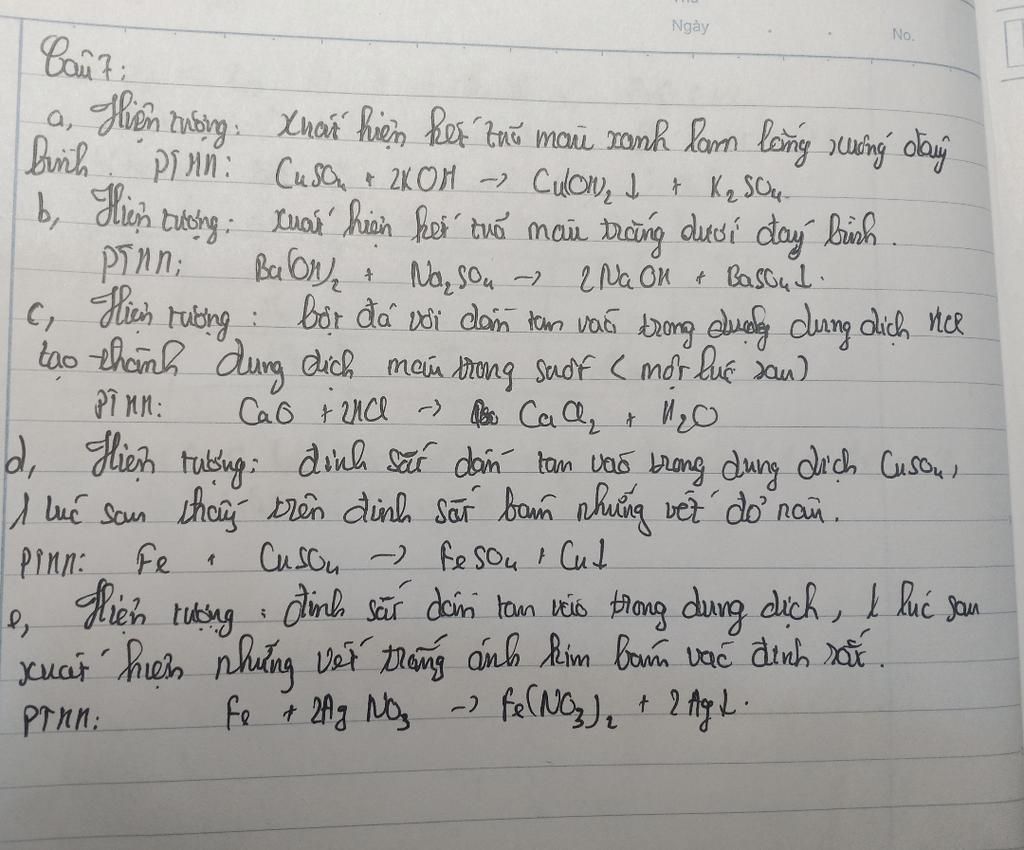 Thứ
Ngày . . No.
Câu 7:
a, Hiện tượng: xuất hiện kết tủa màu xanh lam lắng xuống đáy
bình. PTHH: CuSO4 + 2KOH -> Cu(OH)2 ↓ + K2SO4.
b, Hiện tượng: xuất hiện kết tủa màu trắng dưới đáy bình.
PTHH: Ba(OH)2 + Na2SO4 -> 2NaOH + BaSO4↓.
c, Hiện tượng: bột đá vôi dần tan vào trong dung dịch HCl
tạo thành dung dịch màu trong suốt (một lúc sau)
PTHH: CaO + 2HCl -> CaCl2 + H2O
d, Hiện tượng: đinh sắt dần tan vào trong dung dịch CuSO4,
1 lúc sau thấy trên đinh sắt bám những vết đỏ nâu.
PTHH: Fe + CuSO4 -> FeSO4 + Cu↓
e, Hiện tượng: đinh sắt dần tan vào trong dung dịch, 1 lúc sau
xuất hiện những vết trắng ánh kim bám vào đinh sắt.
PTHH: Fe + 2AgNO3 -> Fe(NO3)2 + 2Ag↓.